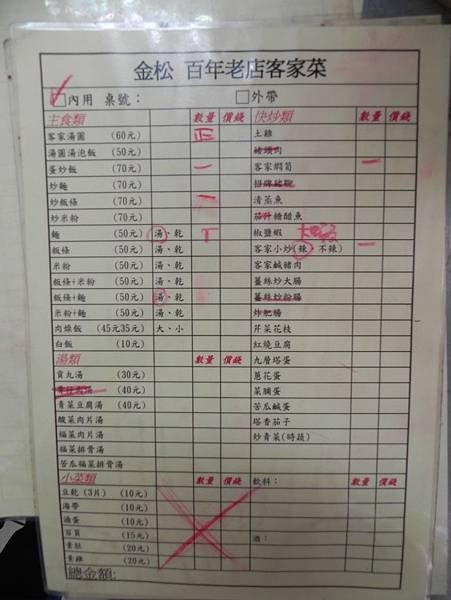 金松 百年老店客家菜
□內用 桌號： □外帶
主食類 數量 價錢 快炒類 數量 價錢
客家湯圓 (60元) 正 土雞
湯圓湯泡飯 (50元) 豬頭肉
蛋炒飯 (70元) 一 客家燜筍 一
炒麵 (70元)
炒粄條 (70元) 清蒸魚
炒米粉 (70元) 茄汁糖醋魚
麵 (50元) 湯、乾 椒鹽蝦
粄條 (50元) 湯、乾 客家小炒(辣、不辣) 一
米粉 (50元) 湯、乾 客家鹹豬肉
粄條+米粉 (50元) 湯、乾 薑絲炒大腸
粄條+麵 (50元) 湯、乾 薑絲炒粉腸
米粉+麵 (50元) 湯、乾 炸肥腸
肉燥飯 (45元35元) 大、小 芹菜花枝
白飯 (10元) 紅燒豆腐
湯類 數量 價錢 九層塔蛋
貢丸湯 (30元) 蔥花蛋
(40元) 菜脯蛋
青菜豆腐湯 (40元) 苦瓜鹹蛋
酸菜肉片湯 塔香茄子
福菜肉片湯 炒青菜(時蔬)
福菜排骨湯
苦瓜福菜排骨湯
小菜類 數量 價錢 飲料： 數量 價錢
豆乾 (3片) (10元)
海帶 (10元)
滷蛋 (10元)
豆頁 (15元) 酒：
素肚 (20元)
素雞 (20元)
總金額：